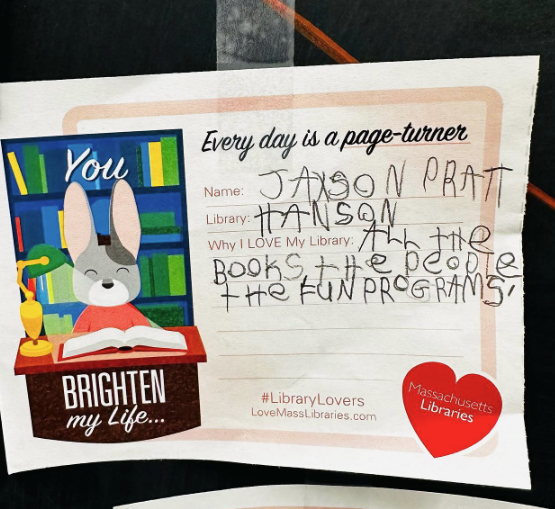 You
BRIGHTEN
my Life...
Every day is a page-turner
Name: JAXSON PRATT
Library: HANSON
Why I LOVE My Library: All the
BOOKS, tHe peOple
tHe FUN PROGRAMS,
#LibraryLovers
LoveMassLibraries.com
Massachusetts
Libraries